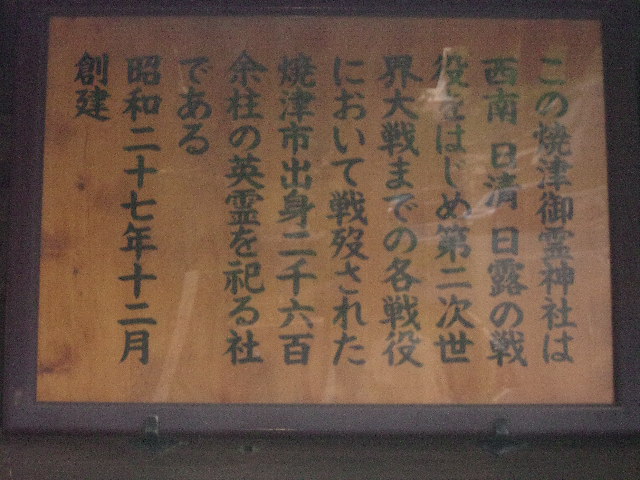 この焼津御霊神社は
西南 日清 日露の戦
役をはじめ第二次世
界大戦までの各戦役
において戦歿された
焼津市出身二千六百
余柱の英霊を祀る社
である
昭和二十七年十二月
創建